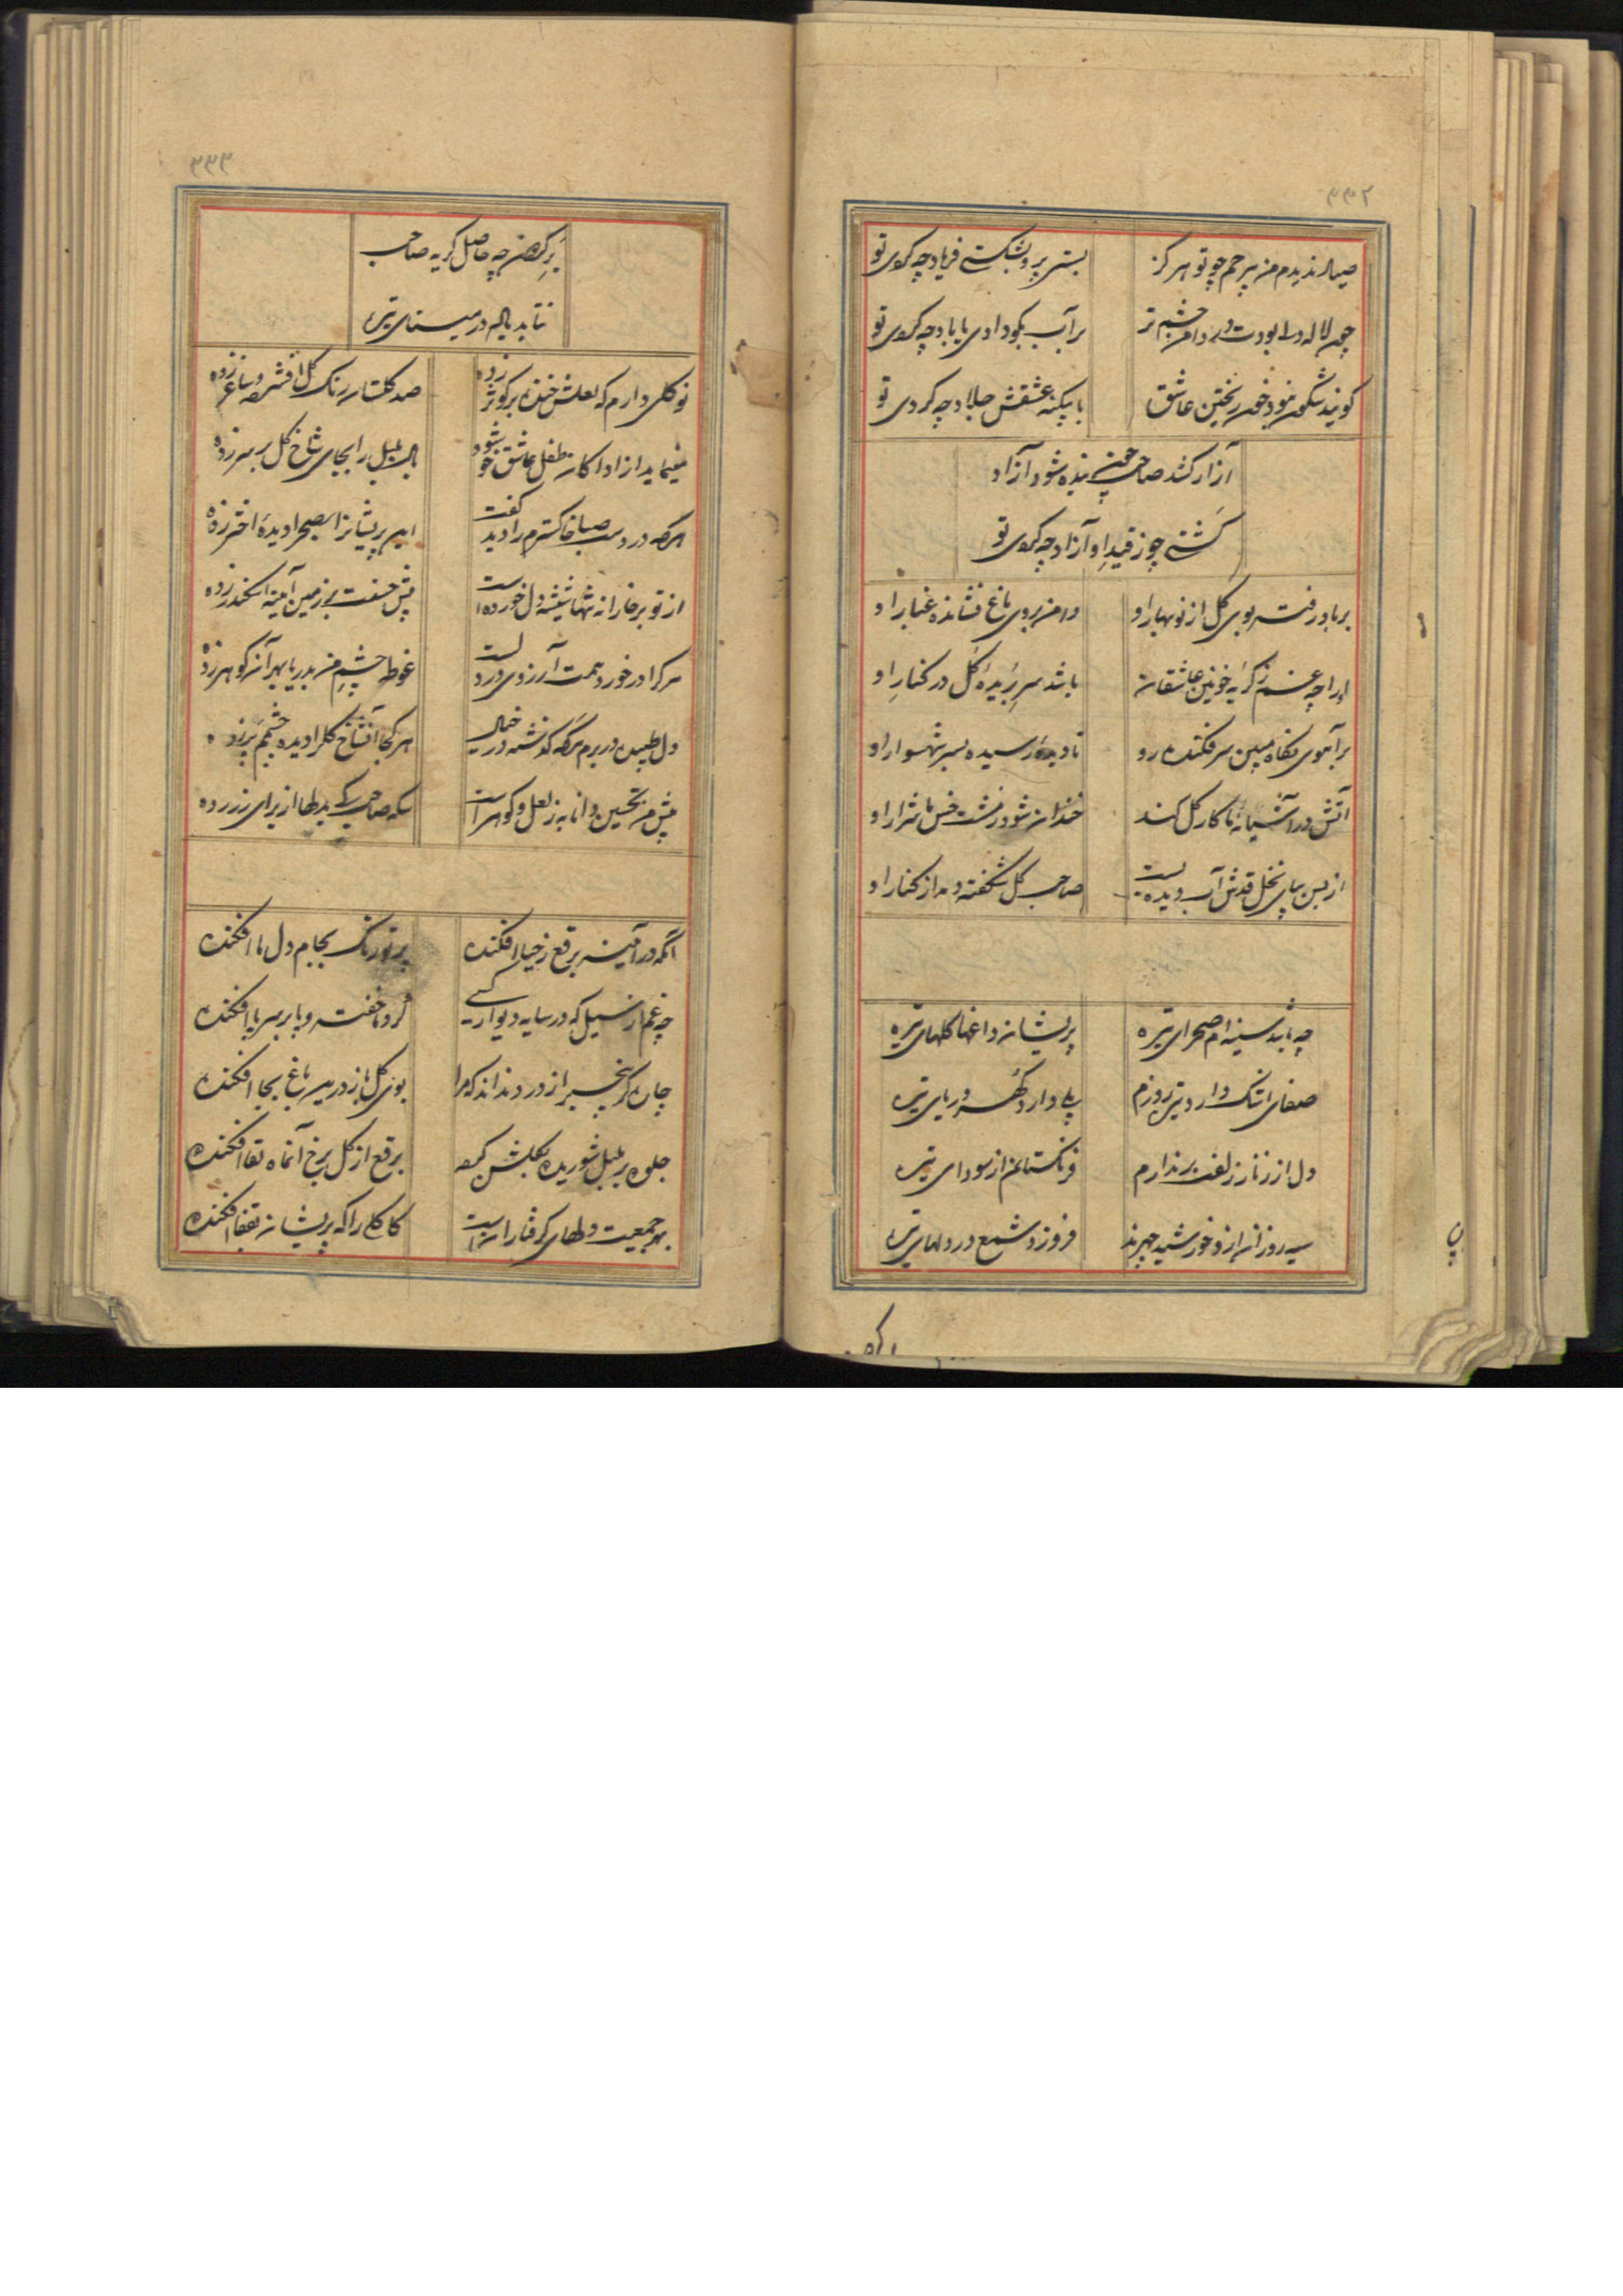 ۳۳۲
صیاد ندیدم من بیرحم چو تو هرگز
بستی پر و بشکستی فریاد چه کردی تو
چون لاله دل بودت در دامن چشم تر
بر آب بکو دادی یا باد چه کردی تو
گویند شگون نبود خون ریختن عاشق
با بیکنه عشقش جلاد چه کردی تو
آزار کشد صاحب چون بنده شود آزاد
گشتی چو ز قید او آزاد چه کردی تو
بر باد رفت بوی گل از نوبهار او
دامن بروی باغ فشانده غبار او
او را چه غم ز گریه خونین عاشقان
باشد سر بریده گل در کنار او
بر آهوی نگاه مبین سر فکنده رو
نادیده رسیده بسر شهسوار او
آتش در آشیانه ما کار گل کند
خندان شود ز مشت خس ما شرار او
از بس بپای نخل قدش آب دیده است
صاحب گل شکفته دمد از کنار او
چه باشد سینه‌ام صحرای تیره
پریشان داغها گلهای تیره
صفای اشک دارد تیره روزم
بلی دارد گهر دریای تیره
دل از زنار زلفت برندارم
فرنگستانم از سودای تیره
سیه روزان از او خورشید چهرند
فروزد شمع در دلهای تیره
۳۳۳
بر گردن چه حاصل گریه صاحب
نتابد باله در مینای تیره
نو گلی دارم که لعلش خنده بر کوثر زده
صد گلستان رنگ گل افشرده و ساغر زده
مینماید از ادا کان طفل عاشق خو شود
بال بلبل را بجای شاخ گل بر سر زده
هر که در دست صبا خاکسترم را دید گفت
این پریشان را بصحرا دیده اختر زده
از تو بر خارا نه تنها شیشه دل خورده است
پیش حسنت بر زمین آیینه اسکندر زده
هر کرا در خورد همت آرزوی در دلست
غوطه چشم من بدریا بهر آن گوهر زده
دل طپیدن در برم هر گه گذشته در خیال
هر کجا آن شاخ گل را دیده چشمم پر زده
پیش من تحسین دانا به ز لعل و گوهر است
سکه صاحب کی بدلها از برای زر زده
آنکه در آینه برقع ز حیا افکنده
پرتو رنگ بجام دل ما افکنده
چه غم از سیل که در سایه دیوار کسی
گرد ما خفته و با بر سر پا افکنده
جلوه بر بلبل شوریده بگلشن کرده
برقع از گل برخ آن ماه لقا افکنده
بهر جمعیت دلهای گرفتاران است
کاکلی را که پریشان بقفا افکنده